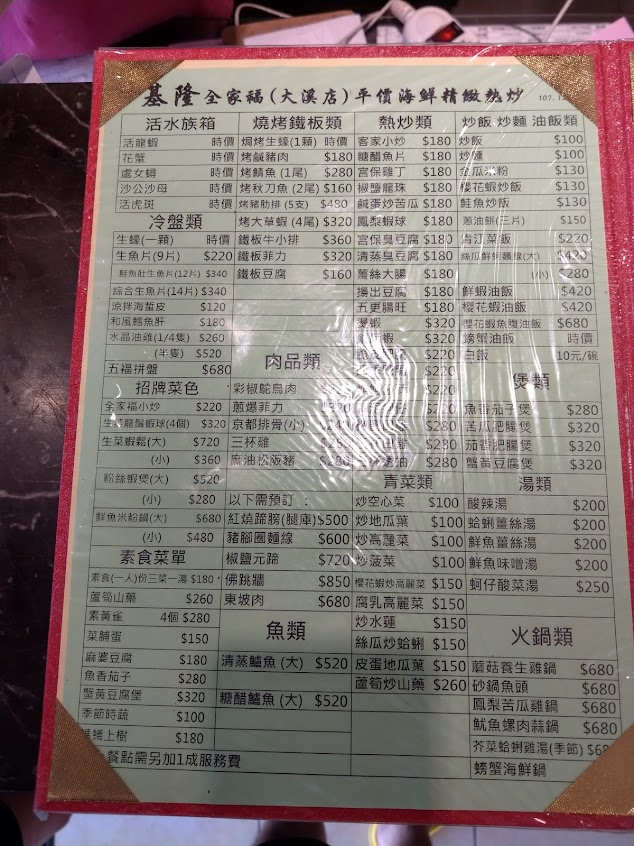 基隆全家福(大溪店)平價海鮮精緻熱炒 107.
活水族箱
活龍蝦 時價
花蟹 時價
處女蟳 時價
沙公沙母 時價
活虎斑 時價
冷盤類
生蠔(一顆) 時價
生魚片(9片) $220
鮭魚肚生魚片(12片) $340
綜合生魚片(14片) $340
涼拌海蜇皮 $120
和風鱈魚肝 $180
水晶油雞(1/4隻) $260
(半隻) $520
五福拼盤 $680
招牌菜色
全家福小炒 $220
生菜龍鬚蝦球(4個) $320
生菜蝦鬆(大) $720
(小) $360
粉絲蝦煲(大) $520
(小) $280
鮮魚米粉鍋(大) $680
(小) $480
素食菜單
素食(一人)份三菜一湯 $180
蘆筍山藥 $260
素黃雀 4個 $280
菜脯蛋 $150
麻婆豆腐 $180
魚香茄子 $280
蟹黃豆腐堡 $320
季節時蔬 $100
螞蟻上樹 $180
餐點需另加1成服務費
燒烤鐵板類
焗烤生蠔(1顆) 時價
烤鹹豬肉 $180
烤鯖魚(1尾) $280
烤秋刀魚(2尾) $160
烤豬肋排(5支) $480
烤大草蝦(4尾) $320
鐵板牛小排 $360
鐵板菲力 $320
鐵板豆腐 $160
肉品類
彩椒鴕鳥肉
煎爆菲力
京都排骨(小)
三杯雞
麻油松阪豬 $280
以下需預訂：
紅燒蹄膀(腿庫) $500
豬腳圈麵線 $600
椒鹽元蹄 $720
佛跳牆 $850
東坡肉 $680
魚類
清蒸鱸魚(大) $520
糖醋鱸魚(大) $520
熱炒類
客家小炒 $180
糖醋魚片 $180
宮保雞丁 $180
椒鹽龍珠 $180
鹹蛋炒苦瓜 $180
鳳梨蝦球 $180
宮保臭豆腐 $180
清蒸臭豆腐 $180
薑絲大腸 $180
揚出豆腐 $180
五更腸旺 $180
$320
蝦 $320
$220
$220
$280
$280
$280
油 $280
青菜類
炒空心菜 $100
炒地瓜葉 $100
炒高麗菜 $100
炒菠菜 $100
櫻花蝦炒高麗菜 $150
腐乳高麗菜 $150
炒水蓮 $150
絲瓜炒蛤蜊 $150
皮蛋地瓜葉 $150
蘆筍炒山藥 $260
炒飯 炒麵 油飯類
炒飯 $100
炒麵 $100
金瓜米粉 $130
櫻花蝦炒飯 $130
鮭魚炒飯 $130
蔥油餅(三片) $150
青江菜飯 $220
絲瓜鮮蚵麵線(大) $420
(小) $280
鮮蝦油飯 $420
櫻花蝦油飯 $420
櫻花蝦魚腹油飯 $680
螃蟹油飯 時價
白飯 10元/碗
煲類
魚香茄子煲 $280
苦瓜肥腸煲 $320
茄香肥腸煲 $320
蟹黃豆腐煲 $320
湯類
酸辣湯 $200
蛤蜊薑絲湯 $200
鮮魚薑絲湯 $200
鮮魚味噌湯 $200
蚵仔酸菜湯 $250
火鍋類
蘑菇養生雞鍋 $680
砂鍋魚頭 $680
鳳梨苦瓜雞鍋 $680
魷魚螺肉蒜鍋 $680
芥菜蛤蜊雞湯(季節) $68
螃蟹海鮮鍋